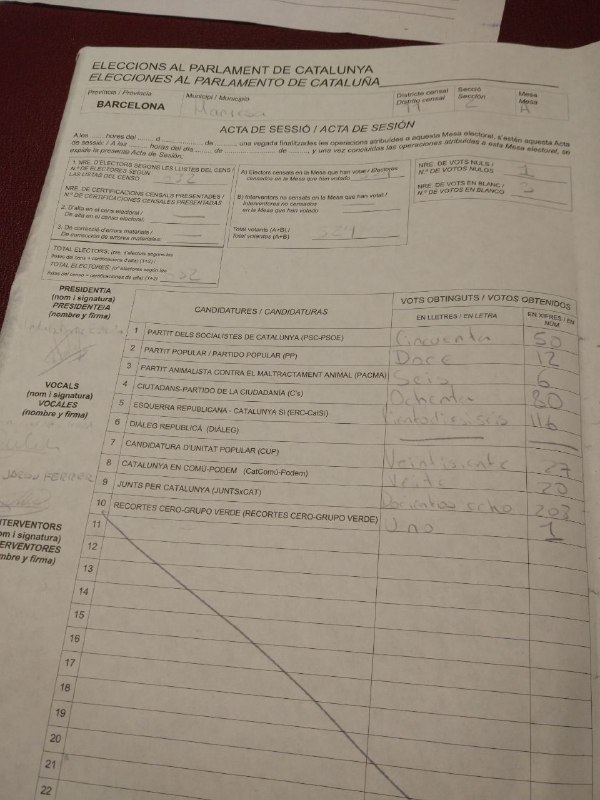 ELECCIONS AL PARLAMENT DE CATALUNYA
ELECCIONES AL PARLAMENTO DE CATALUÑA
Província / Provincia
BARCELONA
Municipi / Municipio
Manresa
Districte censal
Distrito censal
Secció
Sección
2
Mesa
Mesa
A
ACTA DE SESSIÓ / ACTA DE SESIÓN
A les hores del d de de , una vegada finalitzades les operacions atribuïdes a aquesta Mesa electoral, s'estén aquesta Acta
de sessió: / A las horas del día de de , y una vez concluidas las operaciones atribuidas a esta Mesa electoral, se
expide la presente Acta de Sesión.
1. NRE. D'ELECTORS SEGONS LES LLISTES DEL CENS /
N.º DE ELECTORES SEGÚN
LAS LISTAS DEL CENSO
NRE. DE CERTIFICACIONS CENSALS PRESENTADES /
N.º DE CERTIFICACIONES CENSALES PRESENTADAS
2. D'alta en el cens electoral /
De alta en el censo electoral:
3. De correcció d'errors materials /
De corrección de errores materiales:
TOTAL ELECTORS: (nre. d'electors segons les
llistes del cens + certificacions d'alta) (1+2) /
TOTAL ELECTORES: (n.º electores según las
listas del censo + certificaciones de alta) (1+2)
A) Electors censats en la Mesa que han votat / Electores
censados en la Mesa que han votado
B) Interventors no censats en la Mesa que han votat /
Interventores no censados
en la Mesa que han votado
Total votants (A+B) /
Total votantes (A+B)
524
NRE. DE VOTS NULS /
N.º DE VOTOS NULOS
1
NRE. DE VOTS EN BLANC /
N.º DE VOTOS EN BLANCO
3
PRESIDENT/A
(nom i signatura)
PRESIDENTE/A
(nombre y firma)
VOCALS
(nom i signatura)
VOCALES
(nombre y firma)
FERRER
INTERVENTORS
(nom i signatura)
INTERVENTORES
(nombre y firma)
CANDIDATURES / CANDIDATURAS
VOTS OBTINGUTS / VOTOS OBTENIDOS
EN LLETRES / EN LETRA
EN XIFRES / EN
NÚM.
1 PARTIT DELS SOCIALISTES DE CATALUNYA (PSC-PSOE) Cincuenta 50
2 PARTIT POPULAR / PARTIDO POPULAR (PP) Doce 12
3 PARTIT ANIMALISTA CONTRA EL MALTRACTAMENT ANIMAL (PACMA) Seis 6
4 CIUTADANS-PARTIDO DE LA CIUDADANÍA (C's) Ochenta 80
5 ESQUERRA REPUBLICANA - CATALUNYA SÍ (ERC-CatSí) Cientodieciseis 116
6 DIÀLEG REPUBLICÀ (DIÀLEG)
7 CANDIDATURA D'UNITAT POPULAR (CUP) Veintisiente 27
8 CATALUNYA EN COMÚ-PODEM (CatComú-Podem) Veinte 20
9 JUNTS PER CATALUNYA (JUNTSxCAT) Doscientos ocho 208
10 RECORTES CERO-GRUPO VERDE (RECORTES CERO-GRUPO VERDE) Uno 1
11
12
13
14
15
16
17
18
19
20
21
22